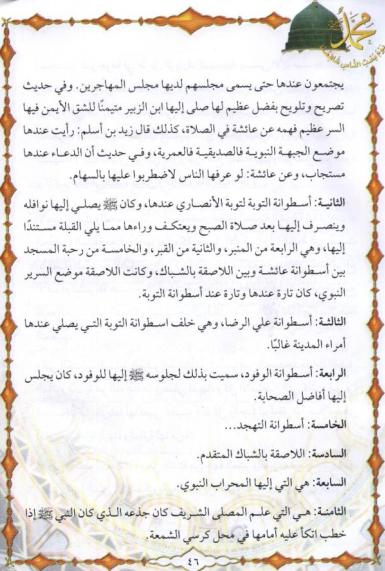 محمد
يجتمعون عندها حتى يسمى مجلسهم لديها مجلس المهاجرين. وفي حديث
تصريح وتلويح بفضل عظيم لها صلى إليها ابن الزبير متيمنًا للشق الأيمن فيها
السر عظيم فهمه عن عائشة في الصلاة، كذلك قال زيد بن أسلم: رأيت عندها
موضع الجبهة النبوية فالصديقية فالعمرية، وفي حديث أن الدعاء عندها
مستجاب، وعن عائشة: لو عرفها الناس لاضطربوا عليها بالسهام.
الثانية: أسطوانة التوبة لتوبة الأنصاري عندها، وكان ﷺ يصلي إليها نوافله
وينصرف إليها بعد صلاة الصبح ويعتكف وراءها مما يلي القبلة مستندًا
إليها، وهي الرابعة من المنبر، والثانية من القبر، والخامسة من رحبة المسجد
بين أسطوانة عائشة وبين اللاصقة بالشباك، وكانت اللاصقة موضع السرير
النبوي، كان تارة عندها وتارة عند أسطوانة التوبة.
الثالثة: أسطوانة علي الرضا، وهي خلف اسطوانة التوبة التي يصلي عندها
أمراء المدينة غالبًا.
الرابعة: أسطوانة الوفود، سميت بذلك لجلوسه ﷺ إليها للوفود، كان يجلس
إليها أفاضل الصحابة.
الخامسة: أسطوانة التهجد...
السادسة: اللاصقة بالشباك المتقدم.
السابعة: هي التي إليها المحراب النبوي.
الثامنة: هي التي علم المصلى الشريف كان جذعه الذي كان النبي ﷺ إذا
خطب اتكأ عليه أمامها في محل كرسي الشمعة.
٤٦